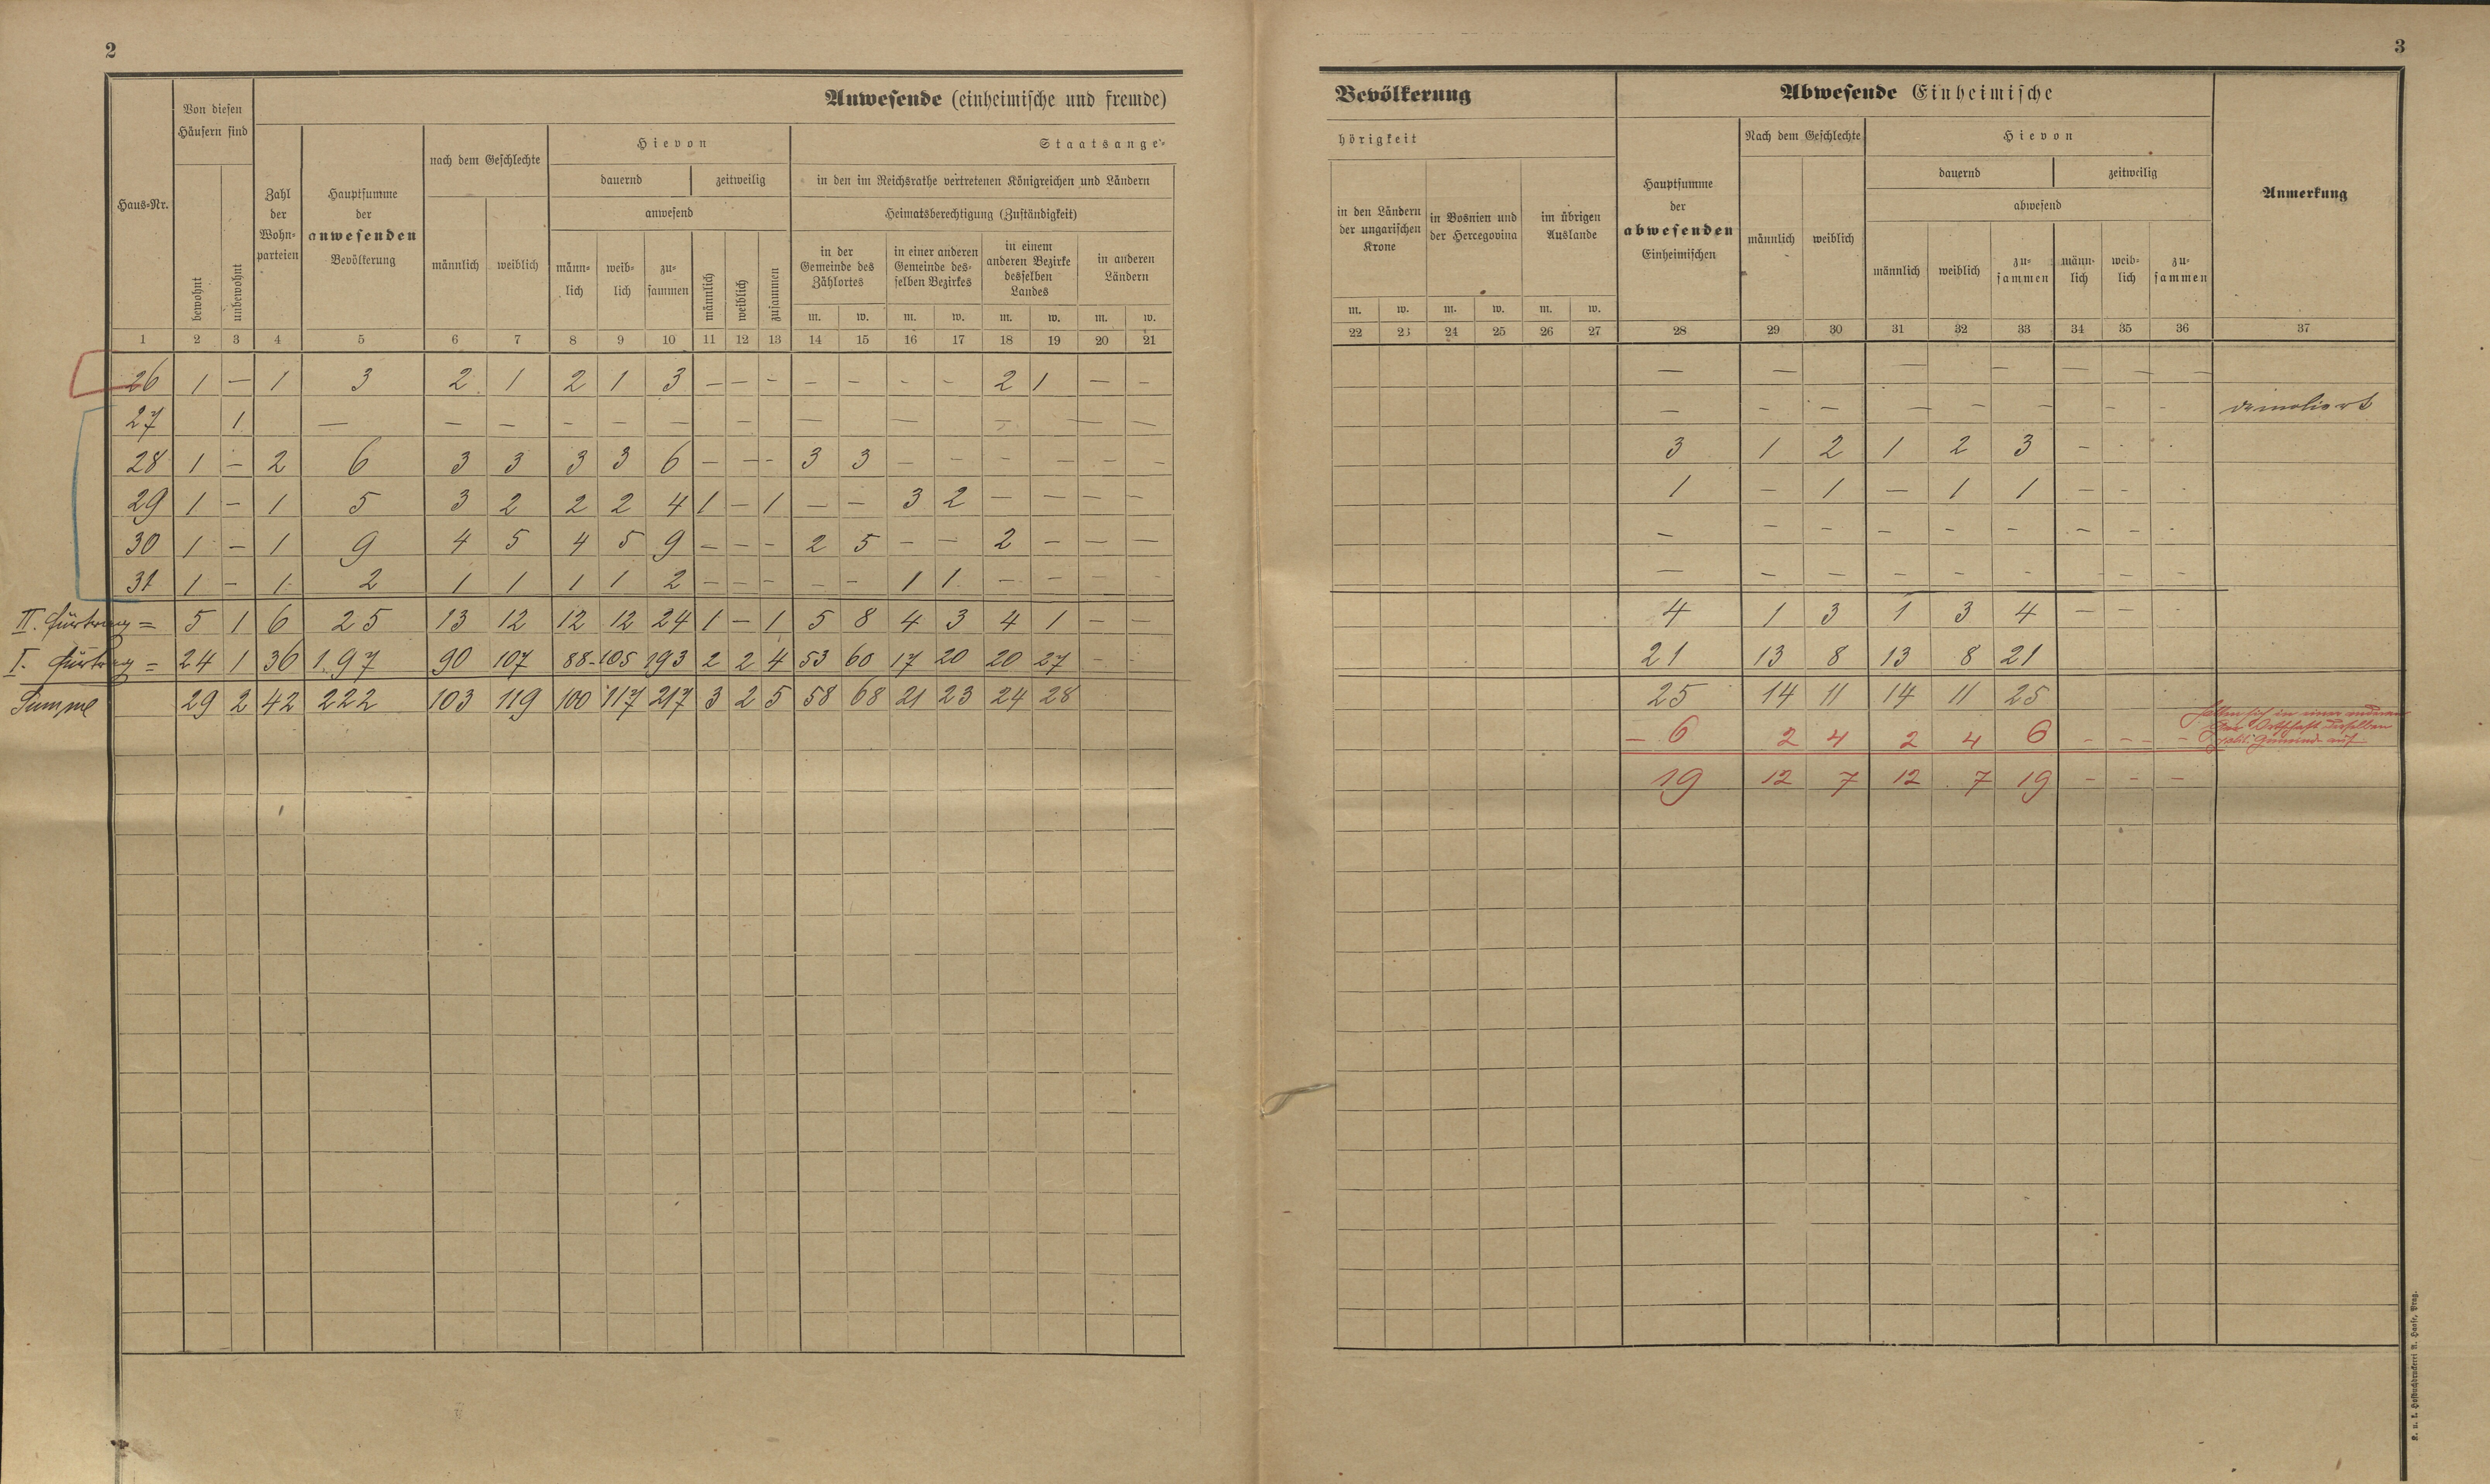 2
3
Anwesende (einheimische und fremde)
Bevölkerung
Abwesende Einheimische
Haus-Nr.
Von diesen
Häusern sind
bewohnt
unbewohnt
Zahl
der
Wohn-
parteien
Hauptsumme
der
anwesenden
Bevölkerung
nach dem Geschlechte
männlich
weiblich
Hievon
dauernd
zeitweilig
anwesend
männ-
lich
weib-
lich
zu-
sammen
männlich
weiblich
zusammen
Staatsange-
in den im Reichsrathe vertretenen Königreichen und Ländern
Heimatsberechtigung (Zuständigkeit)
in der
Gemeinde des
Zählortes
in einer anderen
Gemeinde des-
selben Bezirkes
in einem
anderen Bezirke
desselben
Landes
in anderen
Ländern
m. w. m. w. m. w. m. w.
hörigkeit
in den Ländern
der ungarischen
Krone
in Bosnien und
der Hercegovina
im übrigen
Auslande
m. w. m. w. m. w.
Hauptsumme
der
abwesenden
Einheimischen
Nach dem Geschlechte
männlich
weiblich
Hievon
dauernd
zeitweilig
abwesend
männlich
weiblich
zu-
sammen
männ-
lich
weib-
lich
zu-
sammen
Anmerkung
1 2 3 4 5 6 7 8 9 10 11 12 13 14 15 16 17 18 19 20 21
22 23 24 25 26 27 28 29 30 31 32 33 34 35 36 37
26 1 — 1 3 2 1 2 1 3 — — — — — — — 2 1 — —
— — — — — — — —
27 1 — — — — — — — — — — — —
— — — — — — — — demoliert
28 1 — 2 6 3 3 3 3 6 — — — 3 3 — — — — — —
3 1 2 1 2 3 — - -
29 1 — 1 5 3 2 2 2 4 1 — 1 — — 3 2 — — — —
1 — 1 — 1 1 — - -
30 1 — 1 9 4 5 4 5 9 — — — 2 5 — — 2 — — —
— — — — — — — — -
31 1 — 1 2 1 1 1 1 2 — — — — — 1 1 — — — -
— — — — — — - — —
II. Fürtrag = 5 1 6 25 13 12 12 12 24 1 — 1 5 8 4 3 4 1 — —
4 1 3 1 3 4 — — -
I. Fürtrag = 24 1 36 197 90 107 88 105 193 2 2 4 53 60 17 20 20 27 - -
21 13 8 13 8 21
Summe 29 2 42 222 103 119 100 117 217 3 2 5 58 68 21 23 24 28
25 14 11 14 11 25
— 6 2 4 2 4 6 - - - -
halten sich in einer anderen
Ortschaft derselben
polit. Gemeinde auf
19 12 7 12 7 19 - - —
K. u. k. Hofbuchdruckerei A. Haase, Prag.